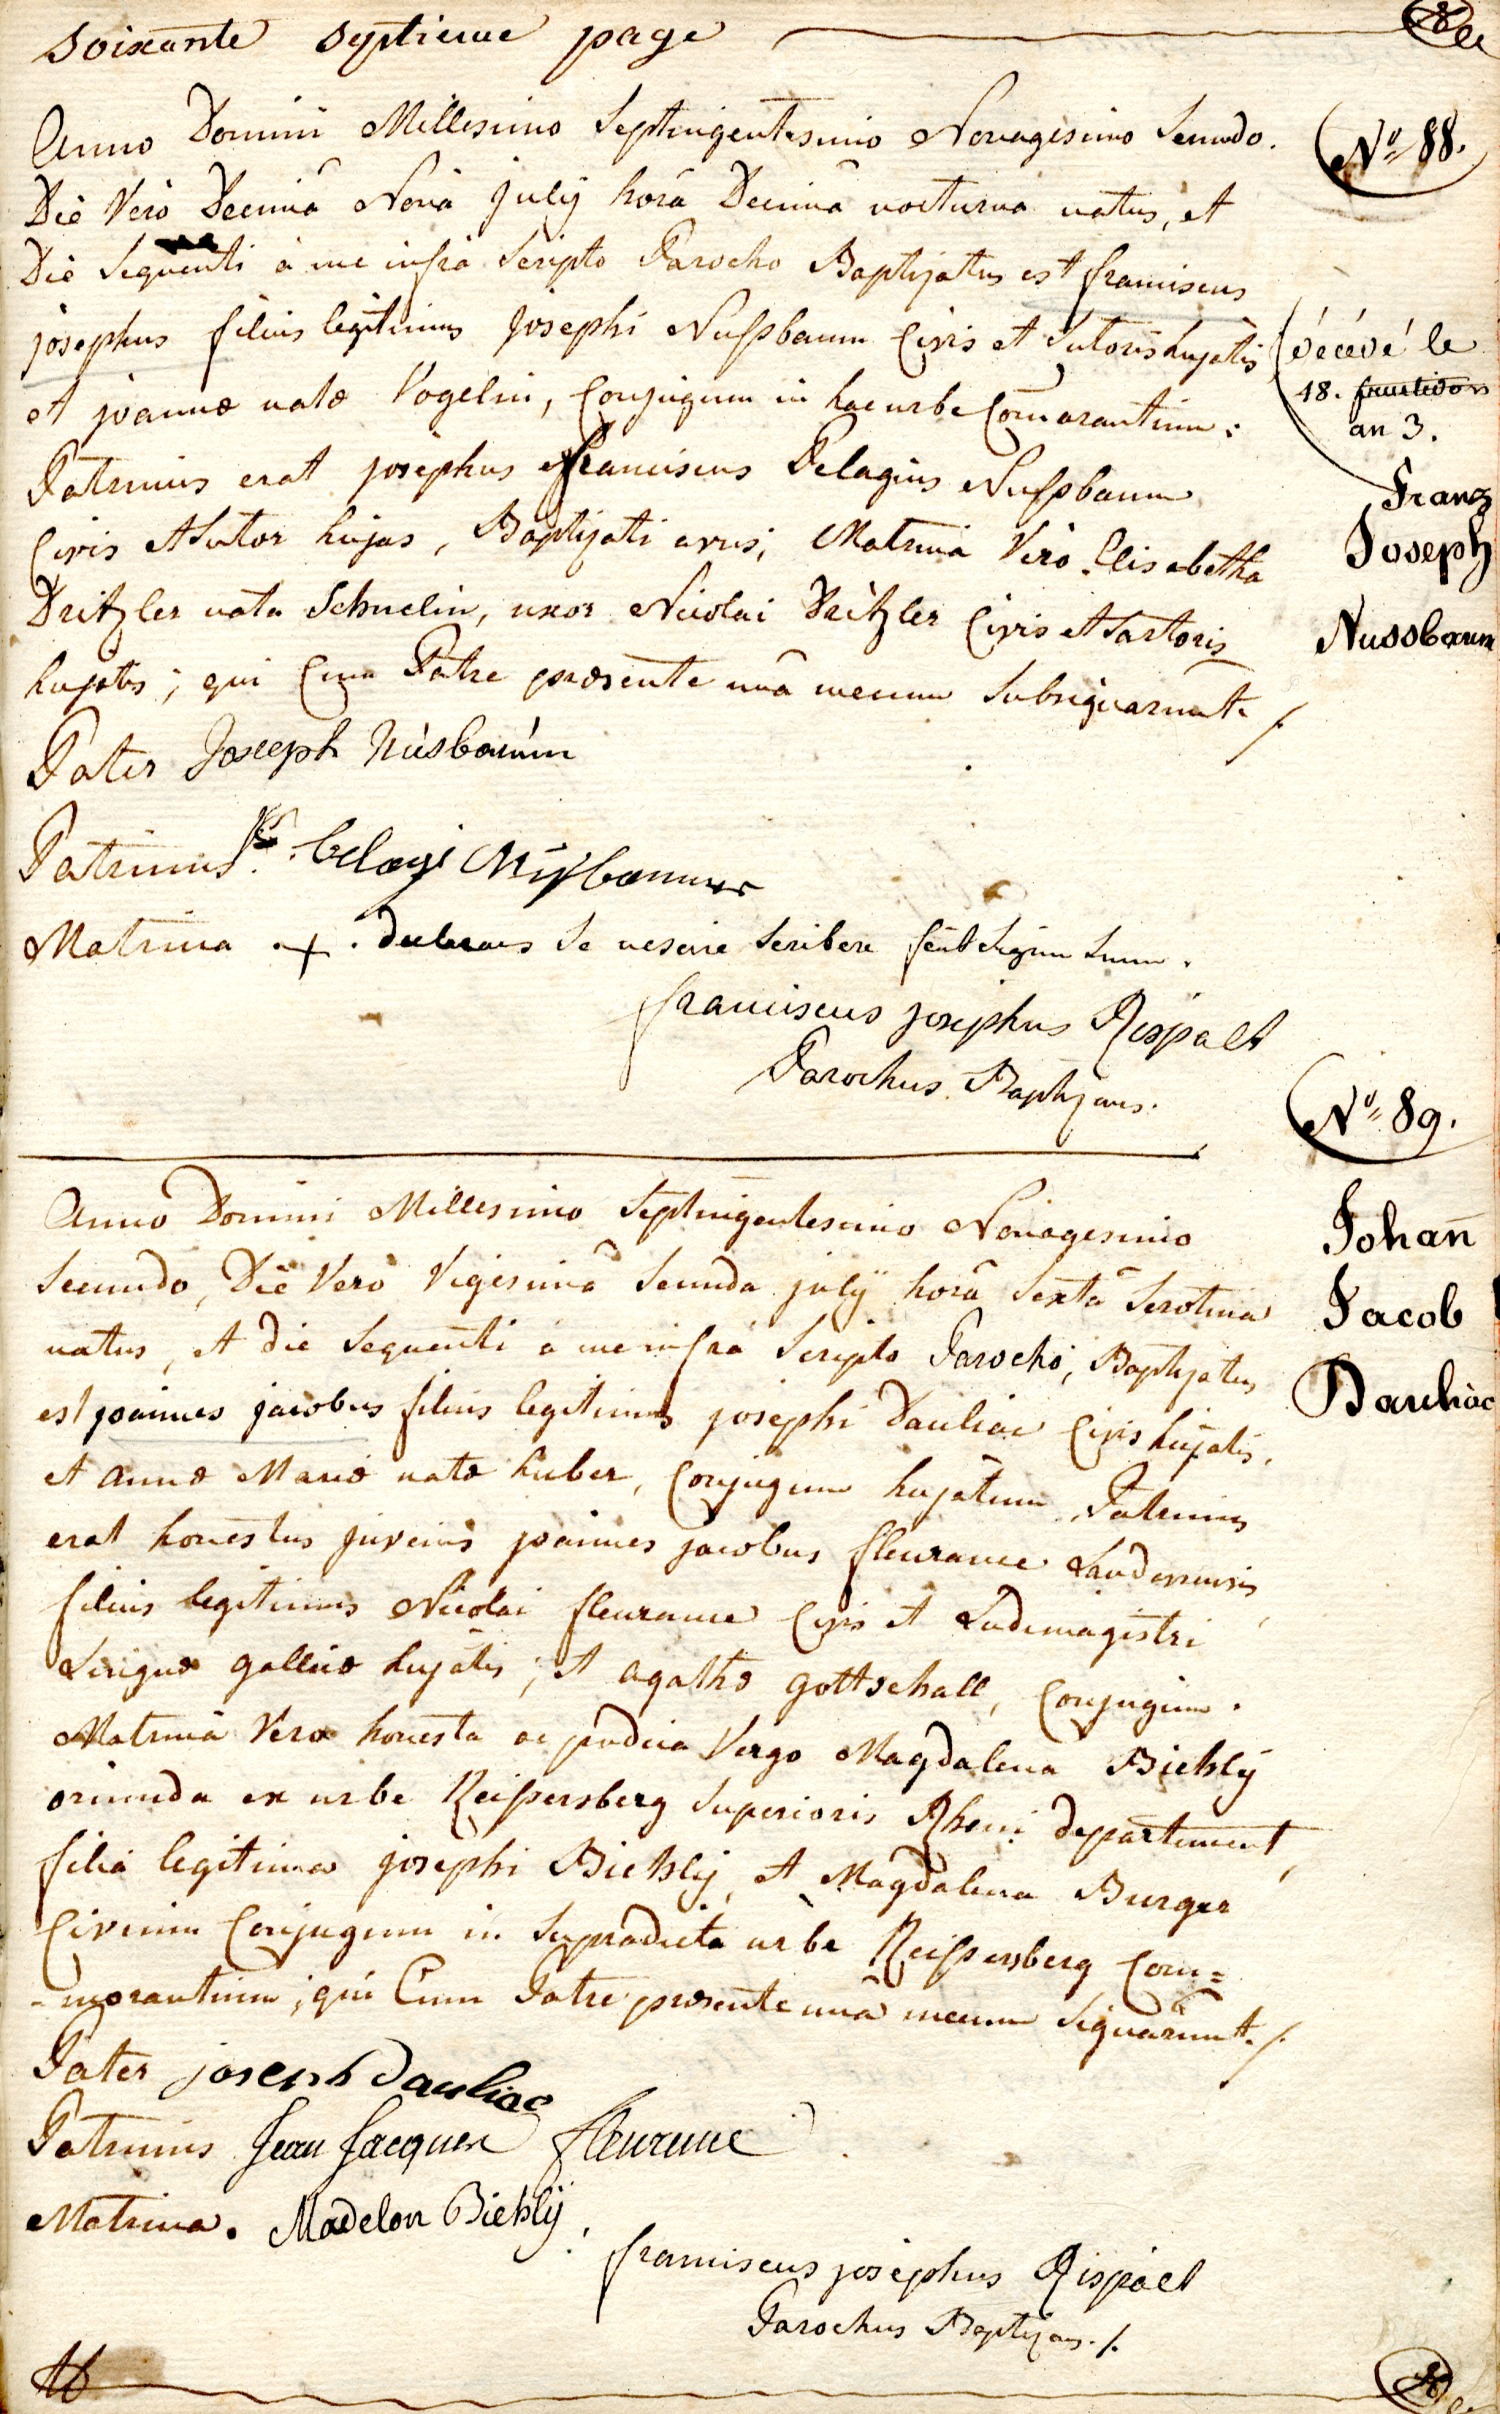 soixante septieme page
Anno Domini Millesimo Septingentesimo Nonagesimo Secundo.
Nº 88.
Die Vero Decimâ Nonâ july horâ Decimâ nocturna natus, et
Die Sequenti à me infrà Scripto Parocho Baptizatus est franciscus
josephus filius legitimus josephi Nußbaum Civis et Sutoris hujatis
et joannæ natæ Vogelin, Conjugum in hac urbe Com̄orantium;
décédé le
18. fructidor
an 3.
Patrinus erat josephus franciscus Pelagius Nußbaum
Civis et Sutor hujas, Baptizati avus, Matrina Vero Elisabetha
Dritzler nata Schnelin, uxor Nicolai Dritzler Civis et Sartoris
hujatis; qui Cum Patre præsente unâ mecum Subsignarunt ./.
Franz
Joseph
Nussbaum
Pater Joseph Nùsbaùm
Patrinus. belagi Nusbaumer
Matrina + declarans Se nescire scribere fecit Signum Suum.
franciscus josephus Rispalt
Parochus Baptizans.
Nº 89.
Anno Domini Millesimo Septingentesimo Nonagesimo
Secundo, Die Vero Vigesimâ Secunda july horâ Sextâ Serotina
natus, et die Sequenti à me infrà Scripto Parocho, Baptizatus
est joannes jacobus filius legitimus josephi Dauliac Civis hujatis,
et annæ Mariæ natæ huber, Conjugum hujatum, Patrinus
erat honestus juvenis joannes jacobus fleurance Landernensis,
filius legitimus Nicolai fleurance Civis et Ludimagistri
Linguæ gallicæ hujatis; et agathæ gottschall, Conjugum.
Matrina Vero honesta ac pudica Virgo Magdalena Biehlÿ
oriunda ex urbe Keißersberg Superioris Rheni departement,
filia legitima josephi Biehlÿ, et Magdalena Burger
Civium Conjugum in Supradicta urbe Keißersberg Com=
-morantium; qui Cum Patre præsente unâ mecum Signarunt ./.
Johan̄
Jacob
Dauliac
Pater joseph Dauliac
Patrinus Jean Jacques fleurence
Matrina. Madelon Biehlÿ
franciscus josephus Rispalt
Parochus Baptizans ./.